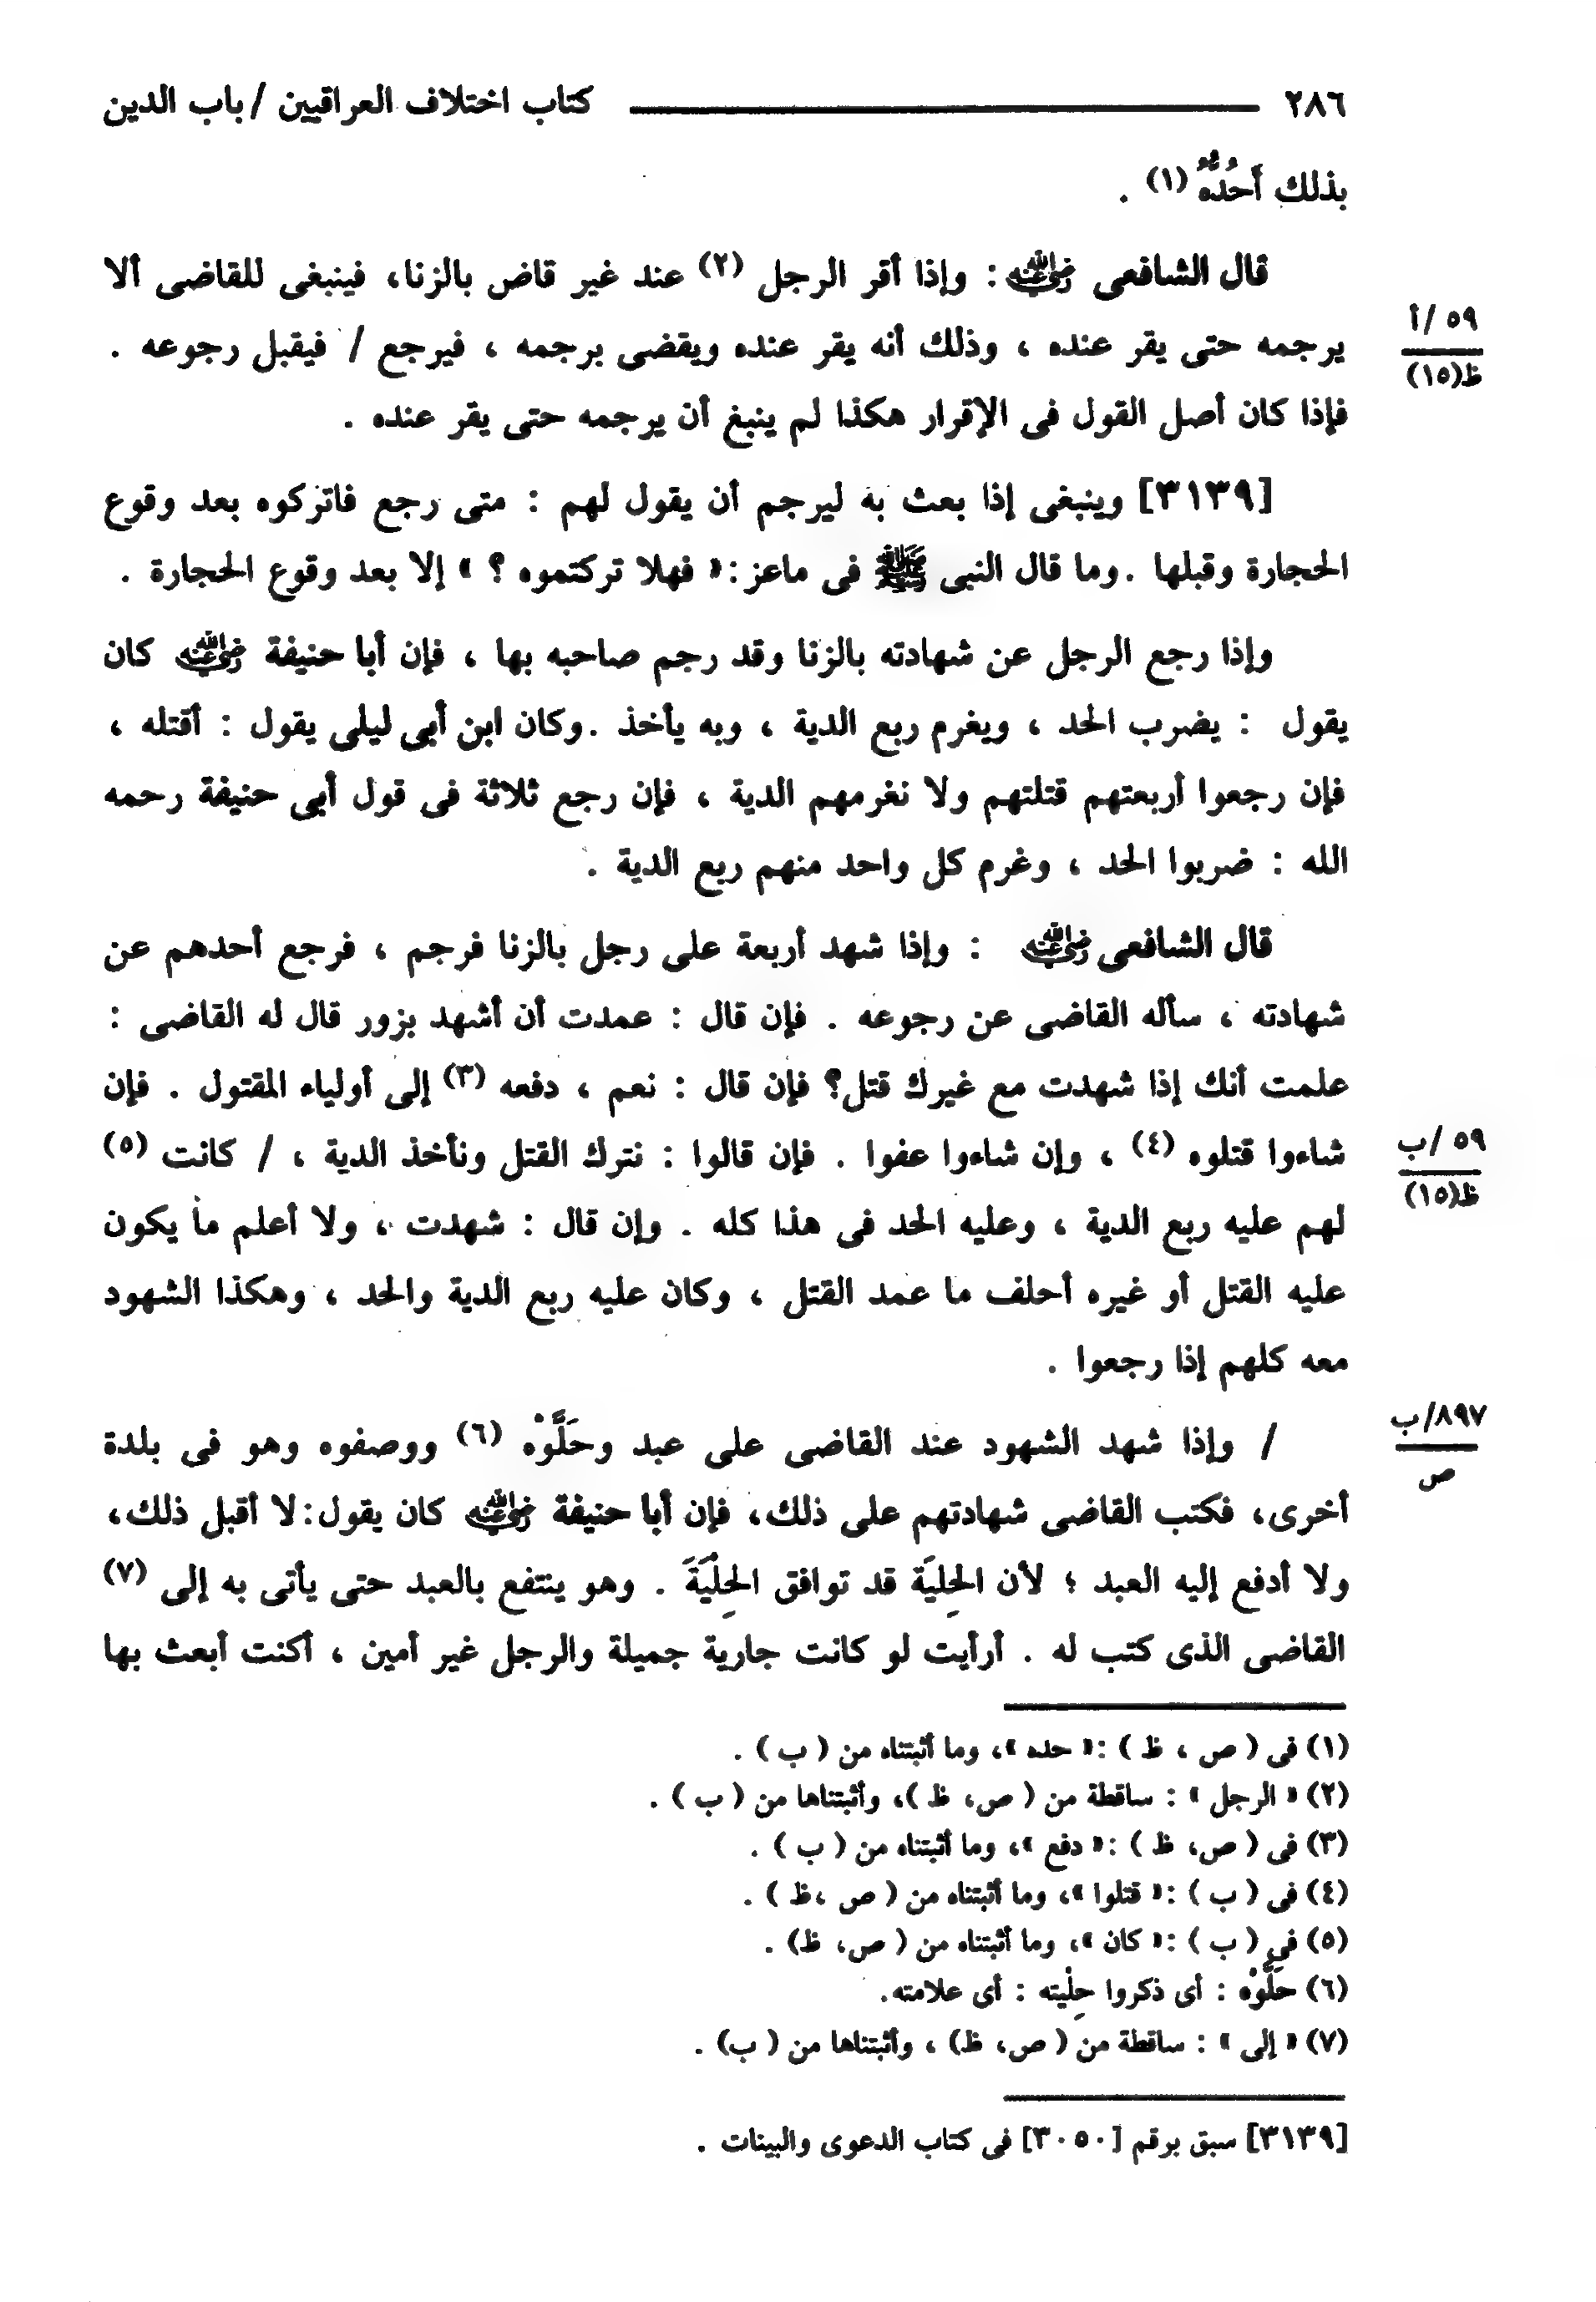 ٢٨٦ كتاب اختلاف العراقيين / باب الدين
بذلك أَحُدُّهُ (١) .
قال الشافعى رضي الله عنه : وإذا أقر الرجل (٢) عند غير قاض بالزنا، فينبغى للقاضى ألا
يرجمه حتى يقر عنده ، وذلك أنه يقر عنده ويقضى برجمه ، فيرجع / فيقبل رجوعه .
٥٩ /أ
ظ(١٥)
فإذا كان أصل القول فى الإقرار هكذا لم ينبغ أن يرجمه حتى يقر عنده .
[٣١٣٩] وينبغى إذا بعث به ليرجم أن يقول لهم : متى رجع فاتركوه بعد وقوع
الحجارة وقبلها .وما قال النبى ﷺ فى ماعز:« فهلا تركتموه ؟ » إلا بعد وقوع الحجارة .
وإذا رجع الرجل عن شهادته بالزنا وقد رجم صاحبه بها ، فإن أبا حنيفة رضي الله عنه كان
يقول : يضرب الحد ، ويغرم ربع الدية ، وبه يأخذ .وكان ابن أبى ليلى يقول : أقتله ،
فإن رجعوا أربعتهم قتلتهم ولا نغرمهم الدية ، فإن رجع ثلاثة فى قول أبى حنيفة رحمه
الله : ضربوا الحد ، وغرم كل واحد منهم ربع الدية .
قال الشافعى رضي الله عنه : وإذا شهد أربعة على رجل بالزنا فرجم ، فرجع أحدهم عن
شهادته ، سأله القاضى عن رجوعه . فإن قال : عمدت أن أشهد بزور قال له القاضى :
علمت أنك إذا شهدت مع غيرك قتل؟ فإن قال : نعم ، دفعه (٣) إلى أولياء المقتول . فإن
شاءوا قتلوه (٤) ، وإن شاءوا عفوا . فإن قالوا : نترك القتل ونأخذ الدية ، / كانت (٥)
٥٩ /ب
ظ(١٥)
لهم عليه ربع الدية ، وعليه الحد فى هذا كله . وإن قال : شهدت ، ولا أعلم ما يكون
عليه القتل أو غيره أحلف ما عمد القتل ، وكان عليه ربع الدية والحد ، وهكذا الشهود
معه كلهم إذا رجعوا .
/ وإذا شهد الشهود عند القاضى على عبد وحَلَّوْه (٦) ووصفوه وهو فى بلدة
٨٩٧/ب
ص
أخرى، فكتب القاضى شهادتهم على ذلك، فإن أبا حنيفة رضي الله عنه كان يقول:لا أقبل ذلك،
ولا أدفع إليه العبد ؛ لأن الحِليَة قد توافق الحِلْيَةَ . وهو ينتفع بالعبد حتى يأتى به إلى (٧)
القاضى الذى كتب له . أرأيت لو كانت جارية جميلة والرجل غير أمين ، أكنت أبعث بها
(١) فى ( ص ، ظ ) :« حده »، وما أثبتناه من ( ب ) .
(٢) « الرجل » : ساقطة من ( ص، ظ )، وأثبتناها من ( ب ) .
(٣) فى ( ص، ظ ) :« دفع »، وما أثبتناه من ( ب ) .
(٤) فى ( ب ) :« قتلوا »، وما أثبتناه من ( ص ،ظ ) .
(٥) فى ( ب ) :« كان »، وما أثبتناه من ( ص، ظ) .
(٦) حَلَّوْه : أى ذكروا حِلْيته : أى علامته.
(٧) « إلى » : ساقطة من ( ص، ظ) ، وأثبتناها من ( ب) .
[٣١٣٩] سبق برقم [٣٠٥٠] فى كتاب الدعوى والبينات .